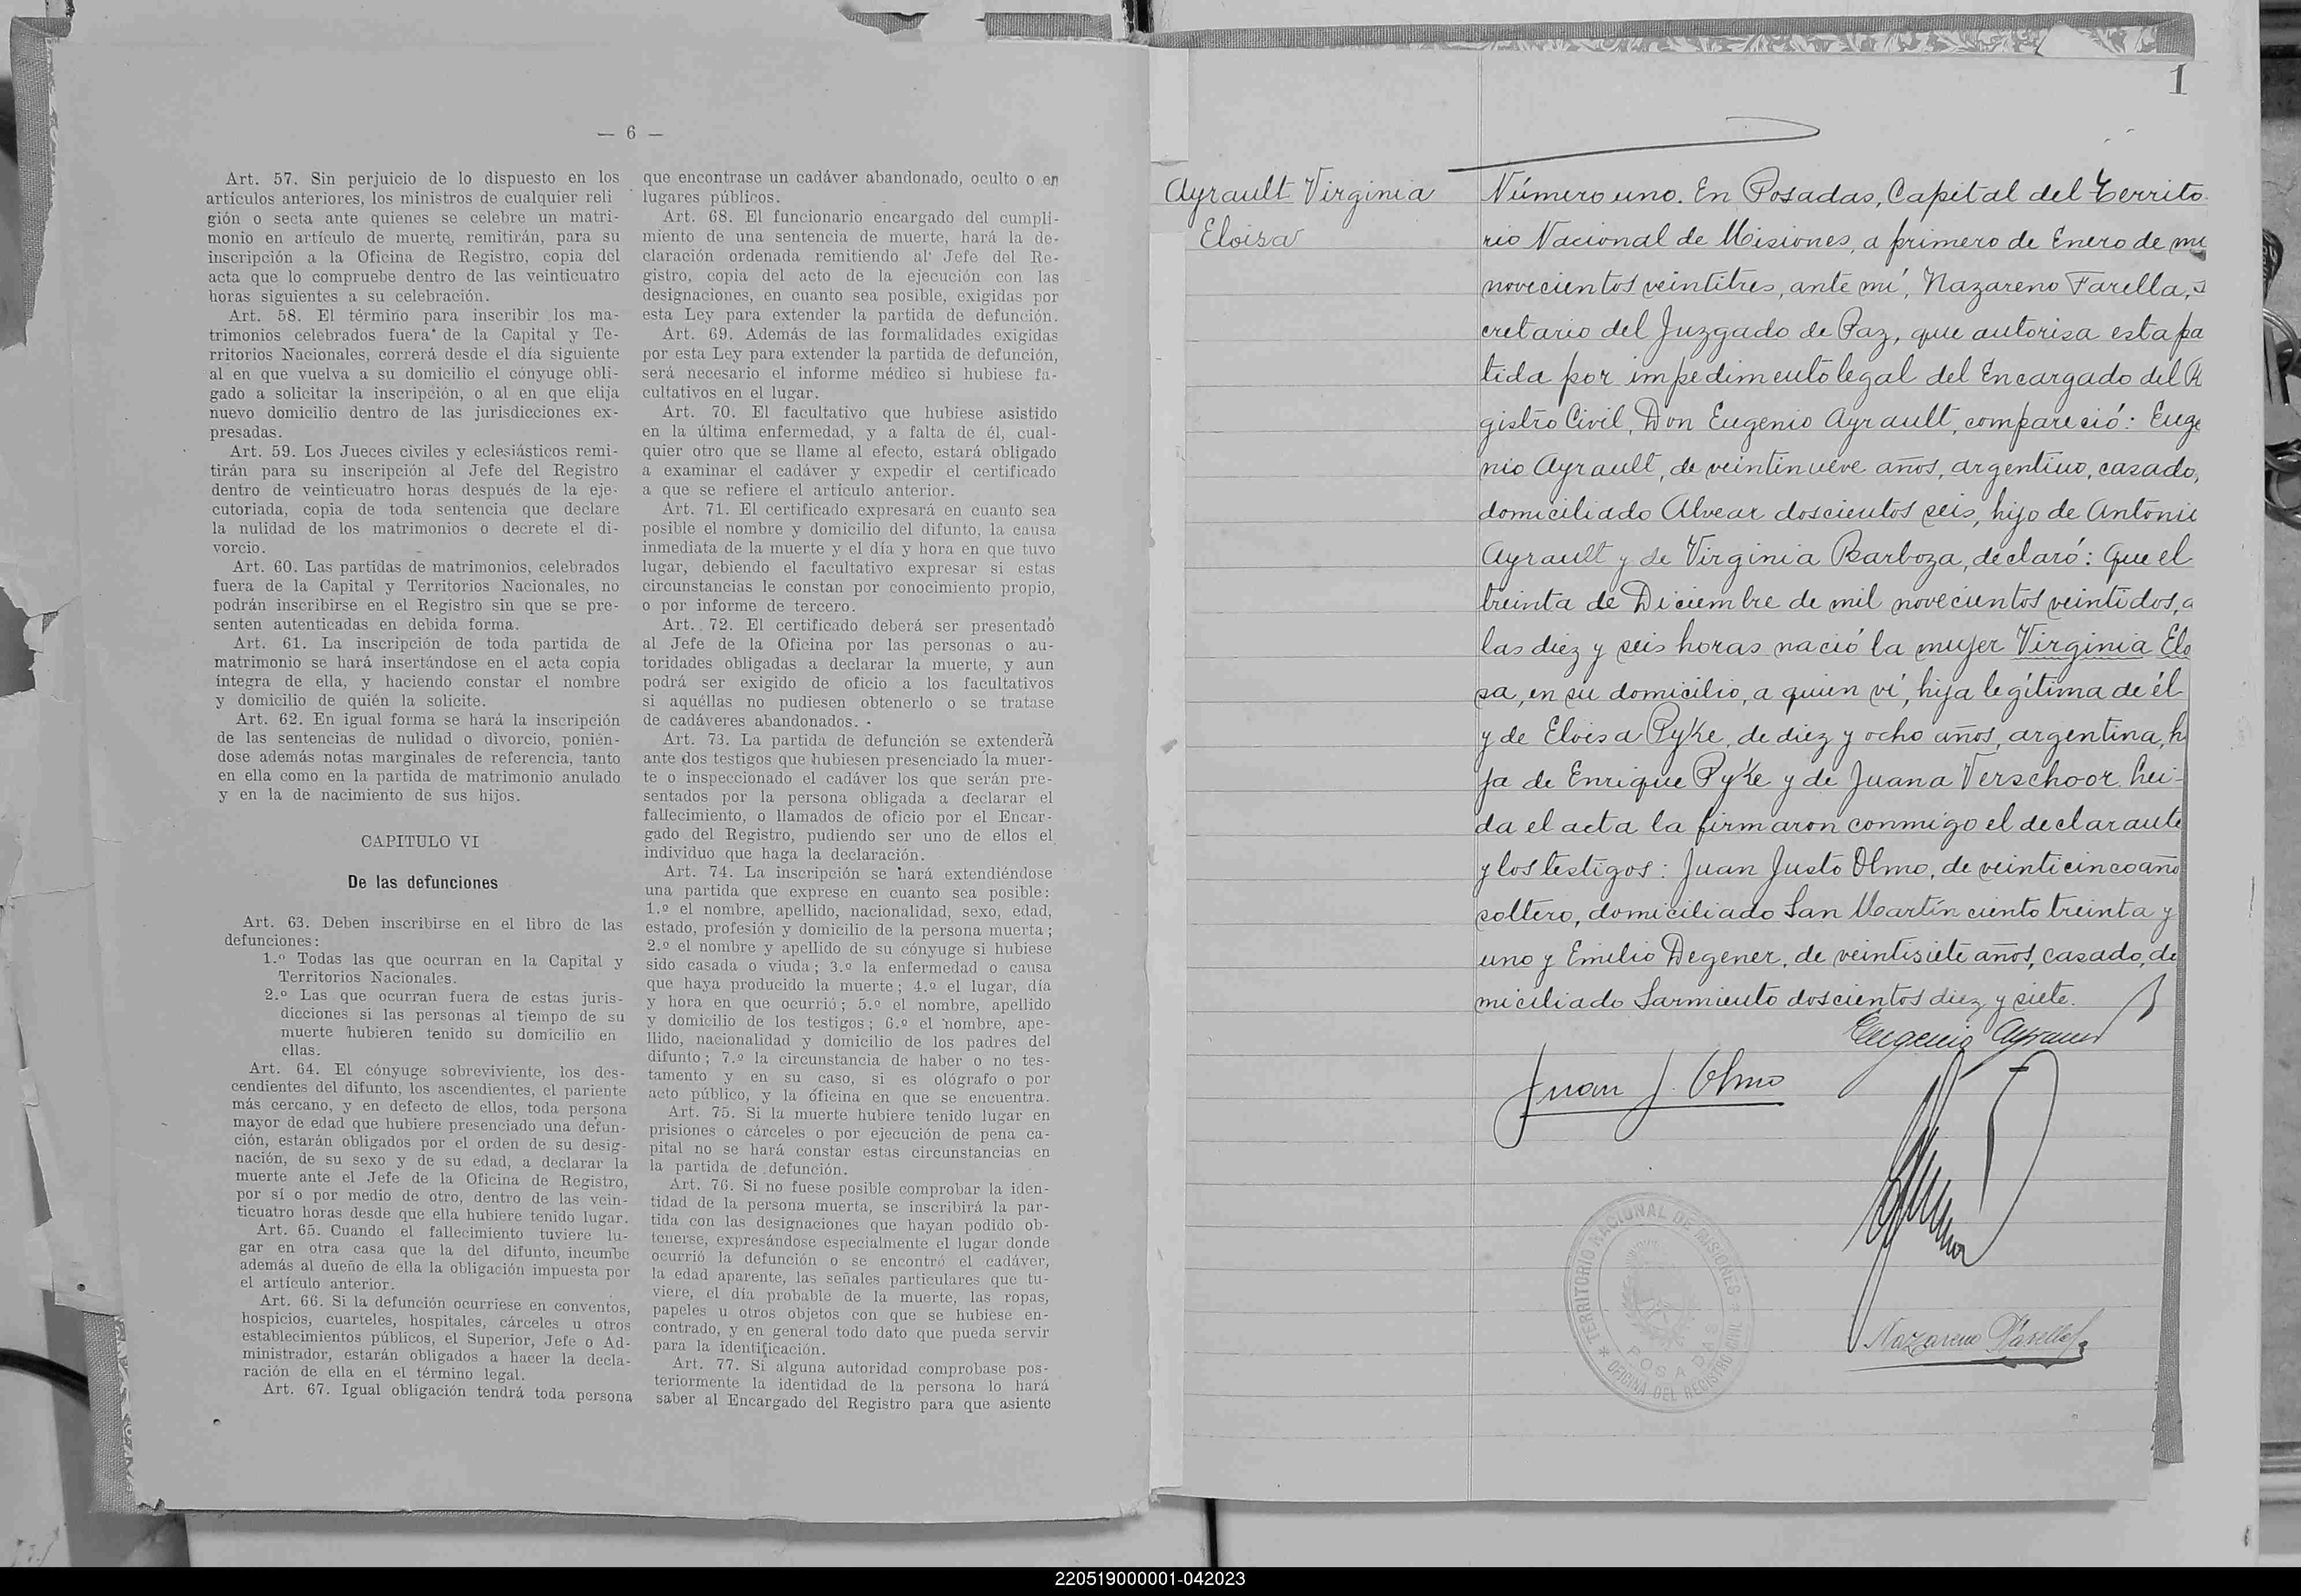 — 6 —
Art. 57. Sin perjuicio de lo dispuesto en los
artículos anteriores, los ministros de cualquier reli
gión o secta ante quienes se celebre un matri-
monio en artículo de muerte, remitirán, para su
inscripción a la Oficina de Registro, copia del
acta que lo compruebe dentro de las veinticuatro
horas siguientes a su celebración.
Art. 58. El término para inscribir los ma-
trimonios celebrados fuera de la Capital y Te-
rritorios Nacionales, correrá desde el día siguiente
al en que vuelva a su domicilio el cónyuge obli-
gado a solicitar la inscripción, o al en que elija
nuevo domicilio dentro de las jurisdicciones ex-
presadas.
Art. 59. Los Jueces civiles y eclesiásticos remi-
tirán para su inscripción al Jefe del Registro
dentro de veinticuatro horas después de la eje-
cutoriada, copia de toda sentencia que declare
la nulidad de los matrimonios o decrete el di-
vorcio.
Art. 60. Las partidas de matrimonios, celebrados
fuera de la Capital y Territorios Nacionales, no
podrán inscribirse en el Registro sin que se pre-
senten autenticadas en debida forma.
Art. 61. La inscripción de toda partida de
matrimonio se hará insertándose en el acta copia
íntegra de ella, y haciendo constar el nombre
y domicilio de quién la solicite.
Art. 62. En igual forma se hará la inscripción
de las sentencias de nulidad o divorcio, ponién-
dose además notas marginales de referencia, tanto
en ella como en la partida de matrimonio anulado
y en la de nacimiento de sus hijos.
CAPITULO VI
De las defunciones
Art. 63. Deben inscribirse en el libro de las
defunciones:
1.º Todas las que ocurran en la Capital y
Territorios Nacionales.
2.º Las que ocurran fuera de estas juris-
dicciones si las personas al tiempo de su
muerte hubieren tenido su domicilio en
ellas.
Art. 64. El cónyuge sobreviviente, los des-
cendientes del difunto, los ascendientes, el pariente
más cercano, y en defecto de ellos, toda persona
mayor de edad que hubiere presenciado una defun-
ción, estarán obligados por el orden de su desig-
nación, de su sexo y de su edad, a declarar la
muerte ante el Jefe de la Oficina de Registro,
por sí o por medio de otro, dentro de las vein-
ticuatro horas desde que ella hubiere tenido lugar.
Art. 65. Cuando el fallecimiento tuviere lu-
gar en otra casa que la del difunto, incumbe
además al dueño de ella la obligación impuesta por
el artículo anterior.
Art. 66. Si la defunción ocurriese en conventos,
hospicios, cuarteles, hospitales, cárceles u otros
establecimientos públicos, el Superior, Jefe o Ad-
ministrador, estarán obligados a hacer la decla-
ración de ella en el término legal.
Art. 67. Igual obligación tendrá toda persona
que encontrase un cadáver abandonado, oculto o en
lugares públicos.
Art. 68. El funcionario encargado del cumpli-
miento de una sentencia de muerte, hará la de-
claración ordenada remitiendo al Jefe del Re-
gistro, copia del acto de la ejecución con las
designaciones, en cuanto sea posible, exigidas por
esta Ley para extender la partida de defunción.
Art. 69. Además de las formalidades exigidas
por esta Ley para extender la partida de defunción,
será necesario el informe médico si hubiese fa-
cultativos en el lugar.
Art. 70. El facultativo que hubiese asistido
en la última enfermedad, y a falta de él, cual-
quier otro que se llame al efecto, estará obligado
a examinar el cadáver y expedir el certificado
a que se refiere el artículo anterior.
Art. 71. El certificado expresará en cuanto sea
posible el nombre y domicilio del difunto, la causa
inmediata de la muerte y el día y hora en que tuvo
lugar, debiendo el facultativo expresar si estas
circunstancias le constan por conocimiento propio,
o por informe de tercero.
Art. 72. El certificado deberá ser presentado
al Jefe de la Oficina por las personas o au-
toridades obligadas a declarar la muerte, y aun
podrá ser exigido de oficio a los facultativos
si aquéllas no pudiesen obtenerlo o se tratase
de cadáveres abandonados.
Art. 73. La partida de defunción se extenderá
ante dos testigos que hubiesen presenciado la muer-
te o inspeccionado el cadáver los que serán pre-
sentados por la persona obligada a declarar el
fallecimiento, o llamados de oficio por el Encar-
gado del Registro, pudiendo ser uno de ellos el
individuo que haga la declaración.
Art. 74. La inscripción se hará extendiéndose
una partida que exprese en cuanto sea posible:
1.º el nombre, apellido, nacionalidad, sexo, edad,
estado, profesión y domicilio de la persona muerta;
2.º el nombre y apellido de su cónyuge si hubiese
sido casada o viuda; 3.º la enfermedad o causa
que haya producido la muerte; 4.º el lugar, día
y hora en que ocurrió; 5.º el nombre, apellido
y domicilio de los testigos; 6.º el nombre, ape-
llido, nacionalidad y domicilio de los padres del
difunto; 7.º la circunstancia de haber o no tes-
tamento y en su caso, si es ológrafo o por
acto público, y la oficina en que se encuentra.
Art. 75. Si la muerte hubiere tenido lugar en
prisiones o cárceles o por ejecución de pena ca-
pital no se hará constar estas circunstancias en
la partida de defunción.
Art. 76. Si no fuese posible comprobar la iden-
tidad de la persona muerta, se inscribirá la par-
tida con las designaciones que hayan podido ob-
tenerse, expresándose especialmente el lugar donde
ocurrió la defunción o se encontró el cadáver,
la edad aparente, las señales particulares que tu-
viere, el día probable de la muerte, las ropas,
papeles u otros objetos con que se hubiese en-
contrado, y en general todo dato que pueda servir
para la identificación.
Art. 77. Si alguna autoridad comprobase pos-
teriormente la identidad de la persona lo hará
saber al Encargado del Registro para que asiente
1
Ayrault Virginia
Eloisa
Número uno. En Posadas, Capital del Territo
rio Nacional de Misiones, a primero de Enero de mi
novecientos veintitres, ante mí, Nazareno Farella, s
cretario del Juzgado de Paz, que autorisa esta pa
tida por impedimento legal del Encargado del R
gistro Civil, Don Eugenio Ayrault, compareció: Euge
nio Ayrault, de veintinueve años, argentino, casado,
domiciliado Alvear doscientos seis, hijo de Antonio
Ayrault y de Virginia Barboza, declaró: Que el
treinta de Diciembre de mil novecientos veintidos, a
las diez y seis horas nació la mujer Virginia Elo
sa, en su domicilio, a quien ví, hija legítima de él
y de Eloisa Pyke, de diez y ocho años, argentina, h
ja de Enrique Pyke y de Juana Verschoor. Leí-
da el acta la firmaron conmigo el declarante
y los testigos: Juan Justo Olmo, de veinticinco año
soltero, domiciliado San Martín ciento treinta y
uno y Emilio Degener, de veintisiete años, casado, do
miciliado Sarmiento doscientos diez y siete.
Eugenio Ayrault
Juan J. Olmo
Nazareno Farella
TERRITORIO NACIONAL DE MISIONES
POSADAS
OFICINA DEL REGISTRO CIVIL
220519000001-042023